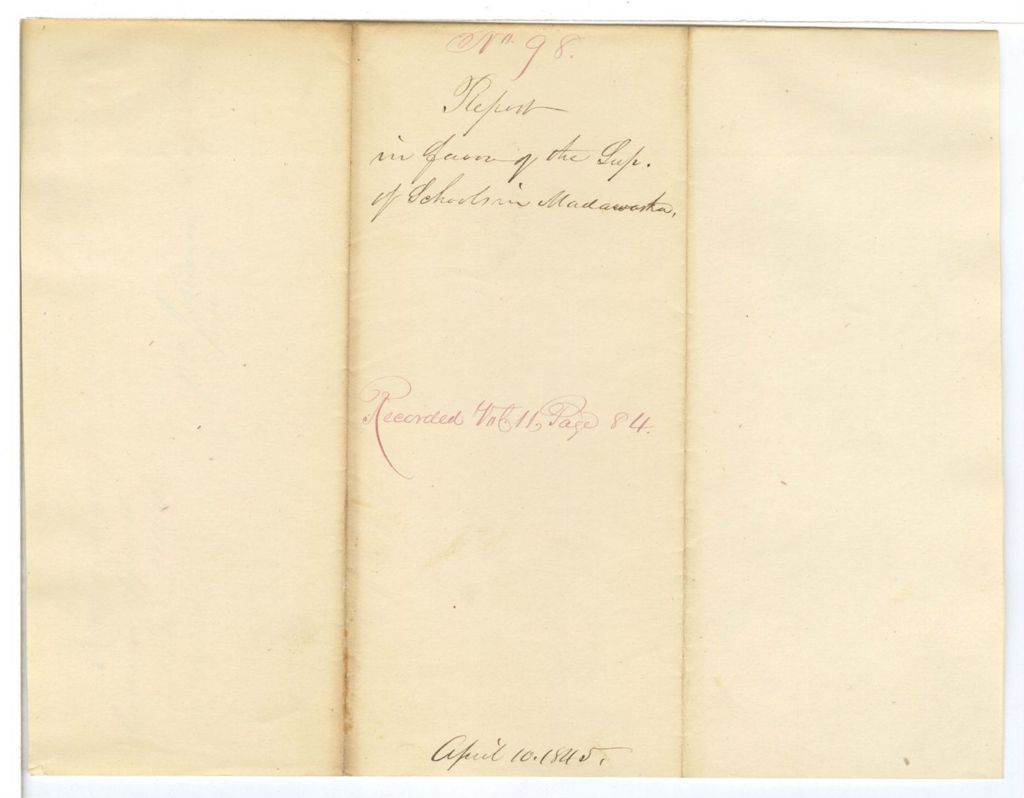 No. 98.
Report
in favor of the Sup.
of Schools in Madawaska.
Recorded Vol. 11, Page 84.
April 10. 1845.